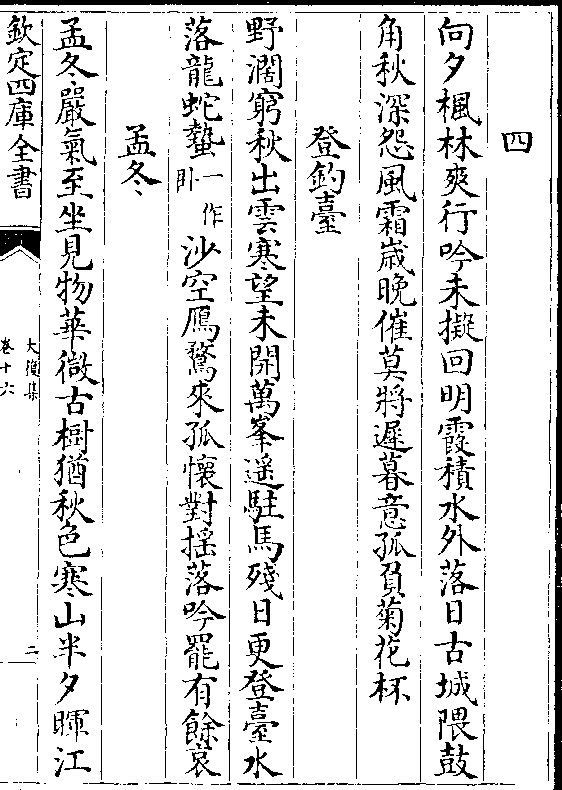 四
向夕楓林爽行吟未擬回明霞積水外落日古城隈鼓
角秋深怨風霜嵗晚催莫將遲暮意孤負菊花杯
登釣臺
野濶窮秋出雲寒望未開萬峯遥駐馬殘日更登臺水
落龍蛇蟄一作卧沙空鴈鶩來孤懷對揺落吟罷有餘哀
孟冬
孟冬嚴氣至坐見物華㣲古樹猶秋色寒山半夕暉江
欽定四庫全書
卷十六
二